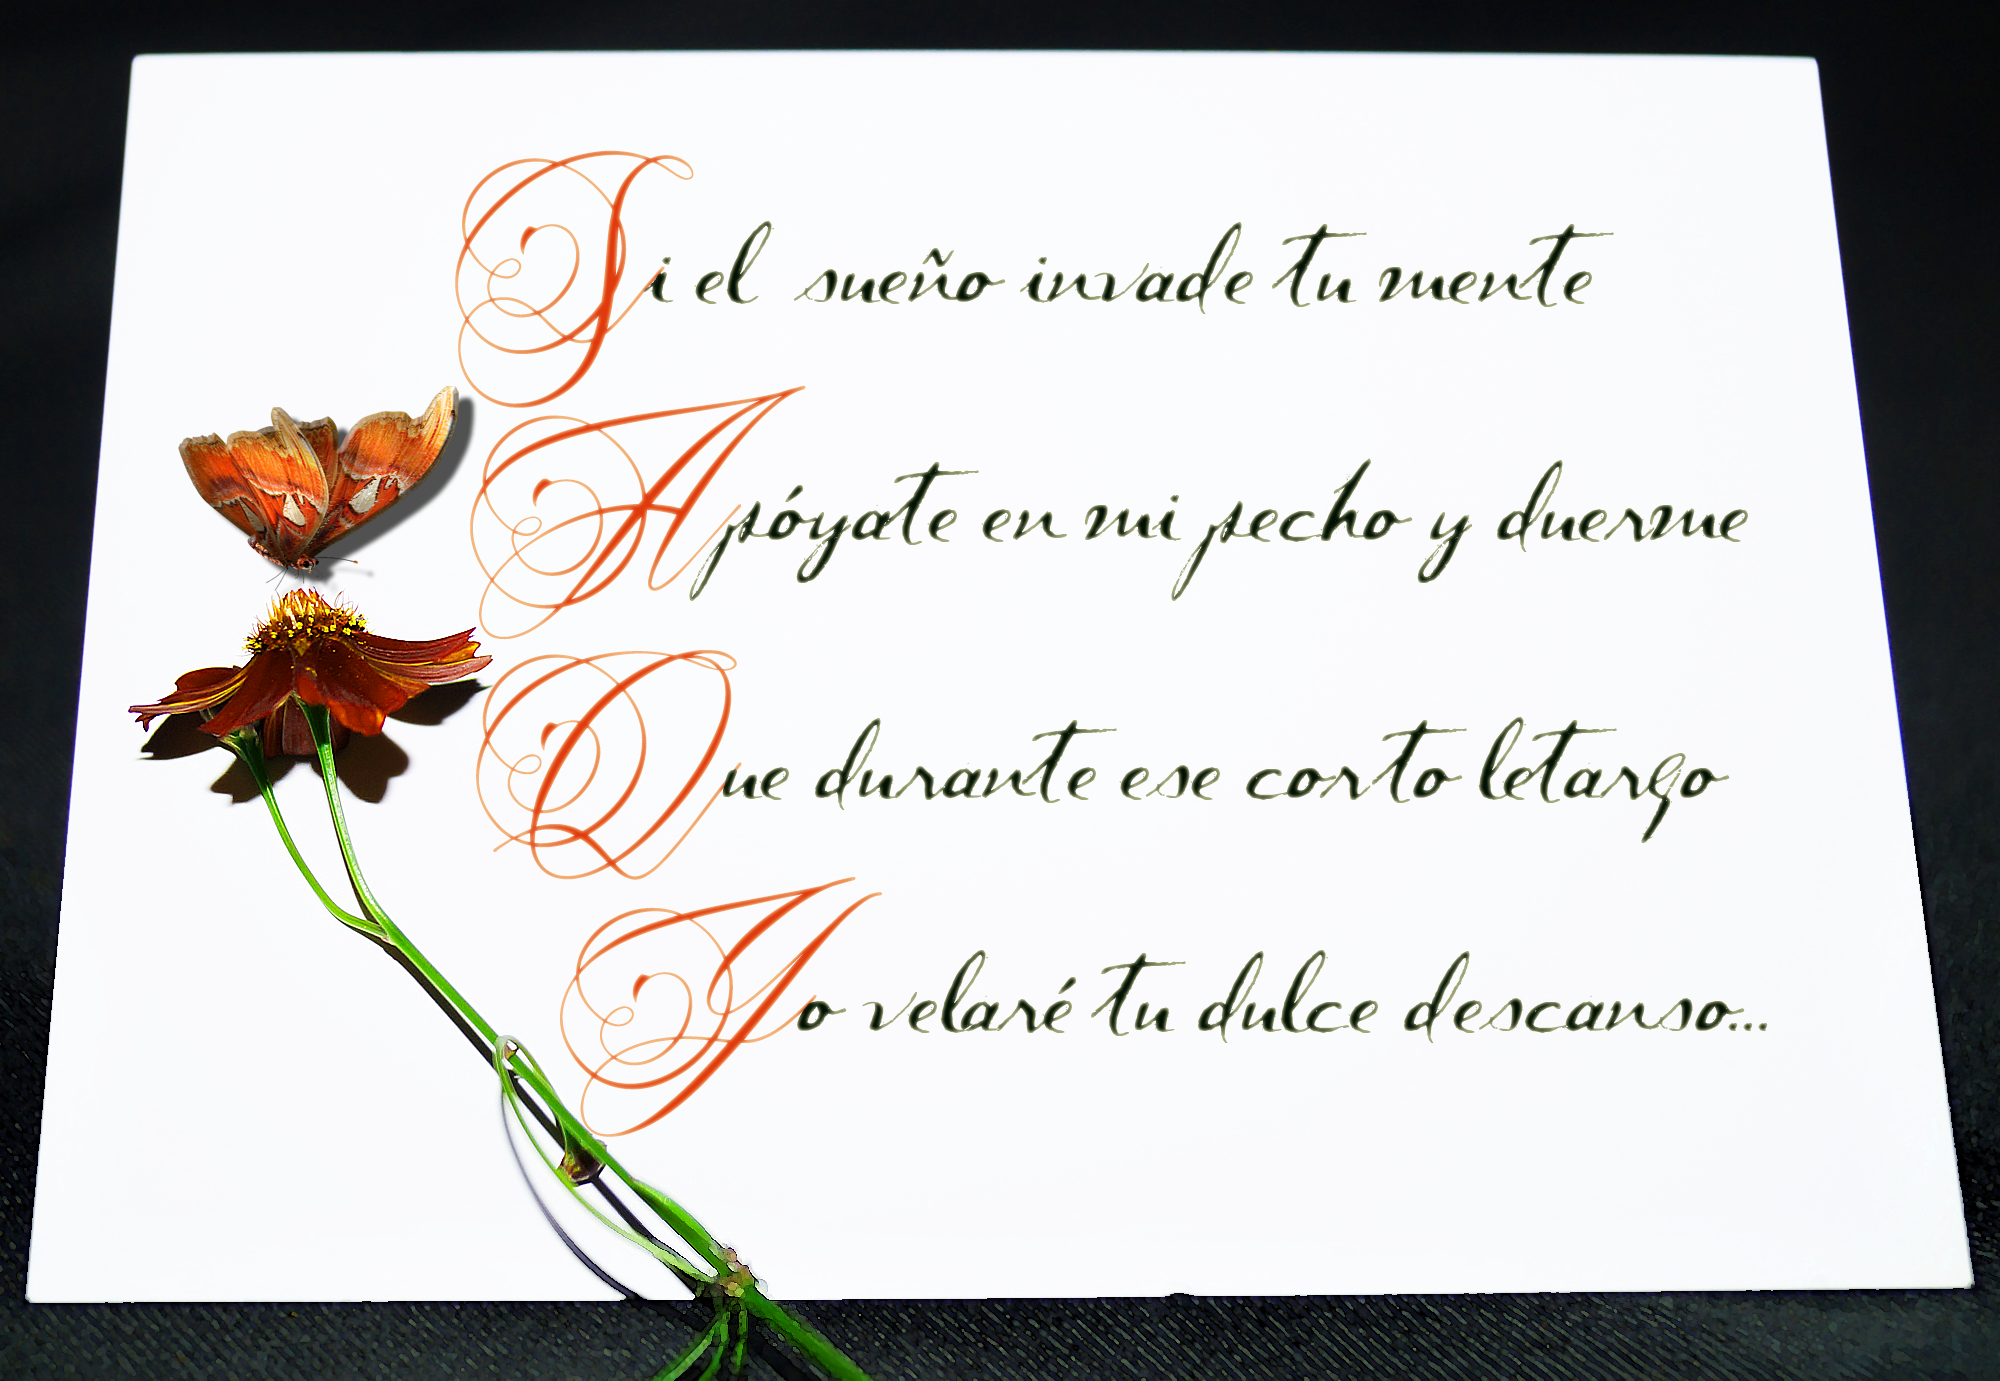 Si el sueño invade tu mente
Apóyate en mi pecho y duerme
Que durante ese corto letargo
Yo velaré tu dulce descanso...